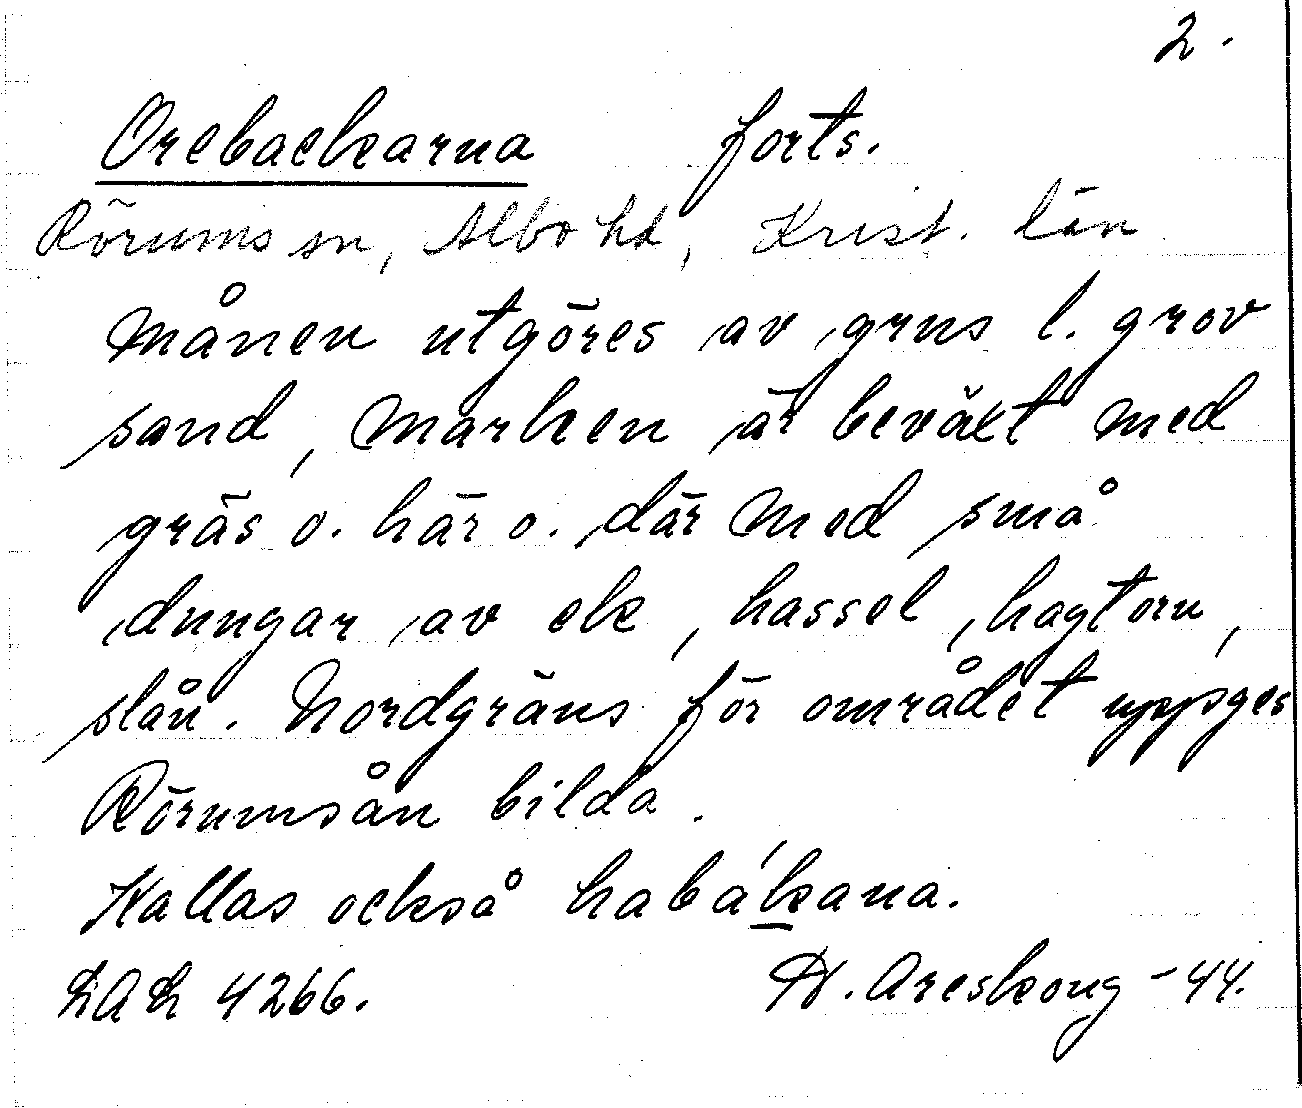 2.
Orebackarna forts.
Rörums sn, Albo hd, Krist. län
Månen utgöres av grus l. grov
sand, marken är beväxt med
gräs o. här o. där med små
dungar av ek, hassel, hagtorn,
slån. Nordgräns för området uppges
Rörumsån bilda.
Kallas också habákana.
LAL 4266. Areskoug -44.